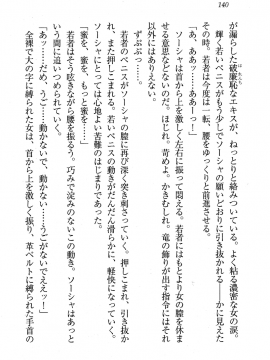 140
が漏らした破廉恥なエキスが、ねっとりと絡みついている。よく粘る濃密な女の涙。
輝く若いペニスがもう少しでソーシャの願いどおりに引き抜かれる――かに見えた
その時。若者は今度は一転、腰をゆっくりと前進させる。
「あっ……あああーっ」
ソーシャは首から上を激しく左右に振って悶える。若者にはもとより女の膣を休ま
せる意思などないのだ。かきむしれ。竜の飾りが出す指令は、それ
以外にはありえない。
若者のペニスがソーシャの膣に再び深く突き刺さっていく。押しこまれ、引き抜か
れ、また押しこまれる。若者の動きがだんだん滑らかに、軽快になっていく。それ
は、ソーシャにとっては心地よい苦難のはじまりであった。
「蜜を、もっと蜜を……」
若者はそう呟きながら腰を振る。巧みで淀みのないこの動き。ソーシャはあっと
いう間に追いつめられていく。
動かないで、うごかないでえぇーっ!」
全裸で大の字に縛られた女は、首から上を激しく振り、革ベルトに縛られた手首の